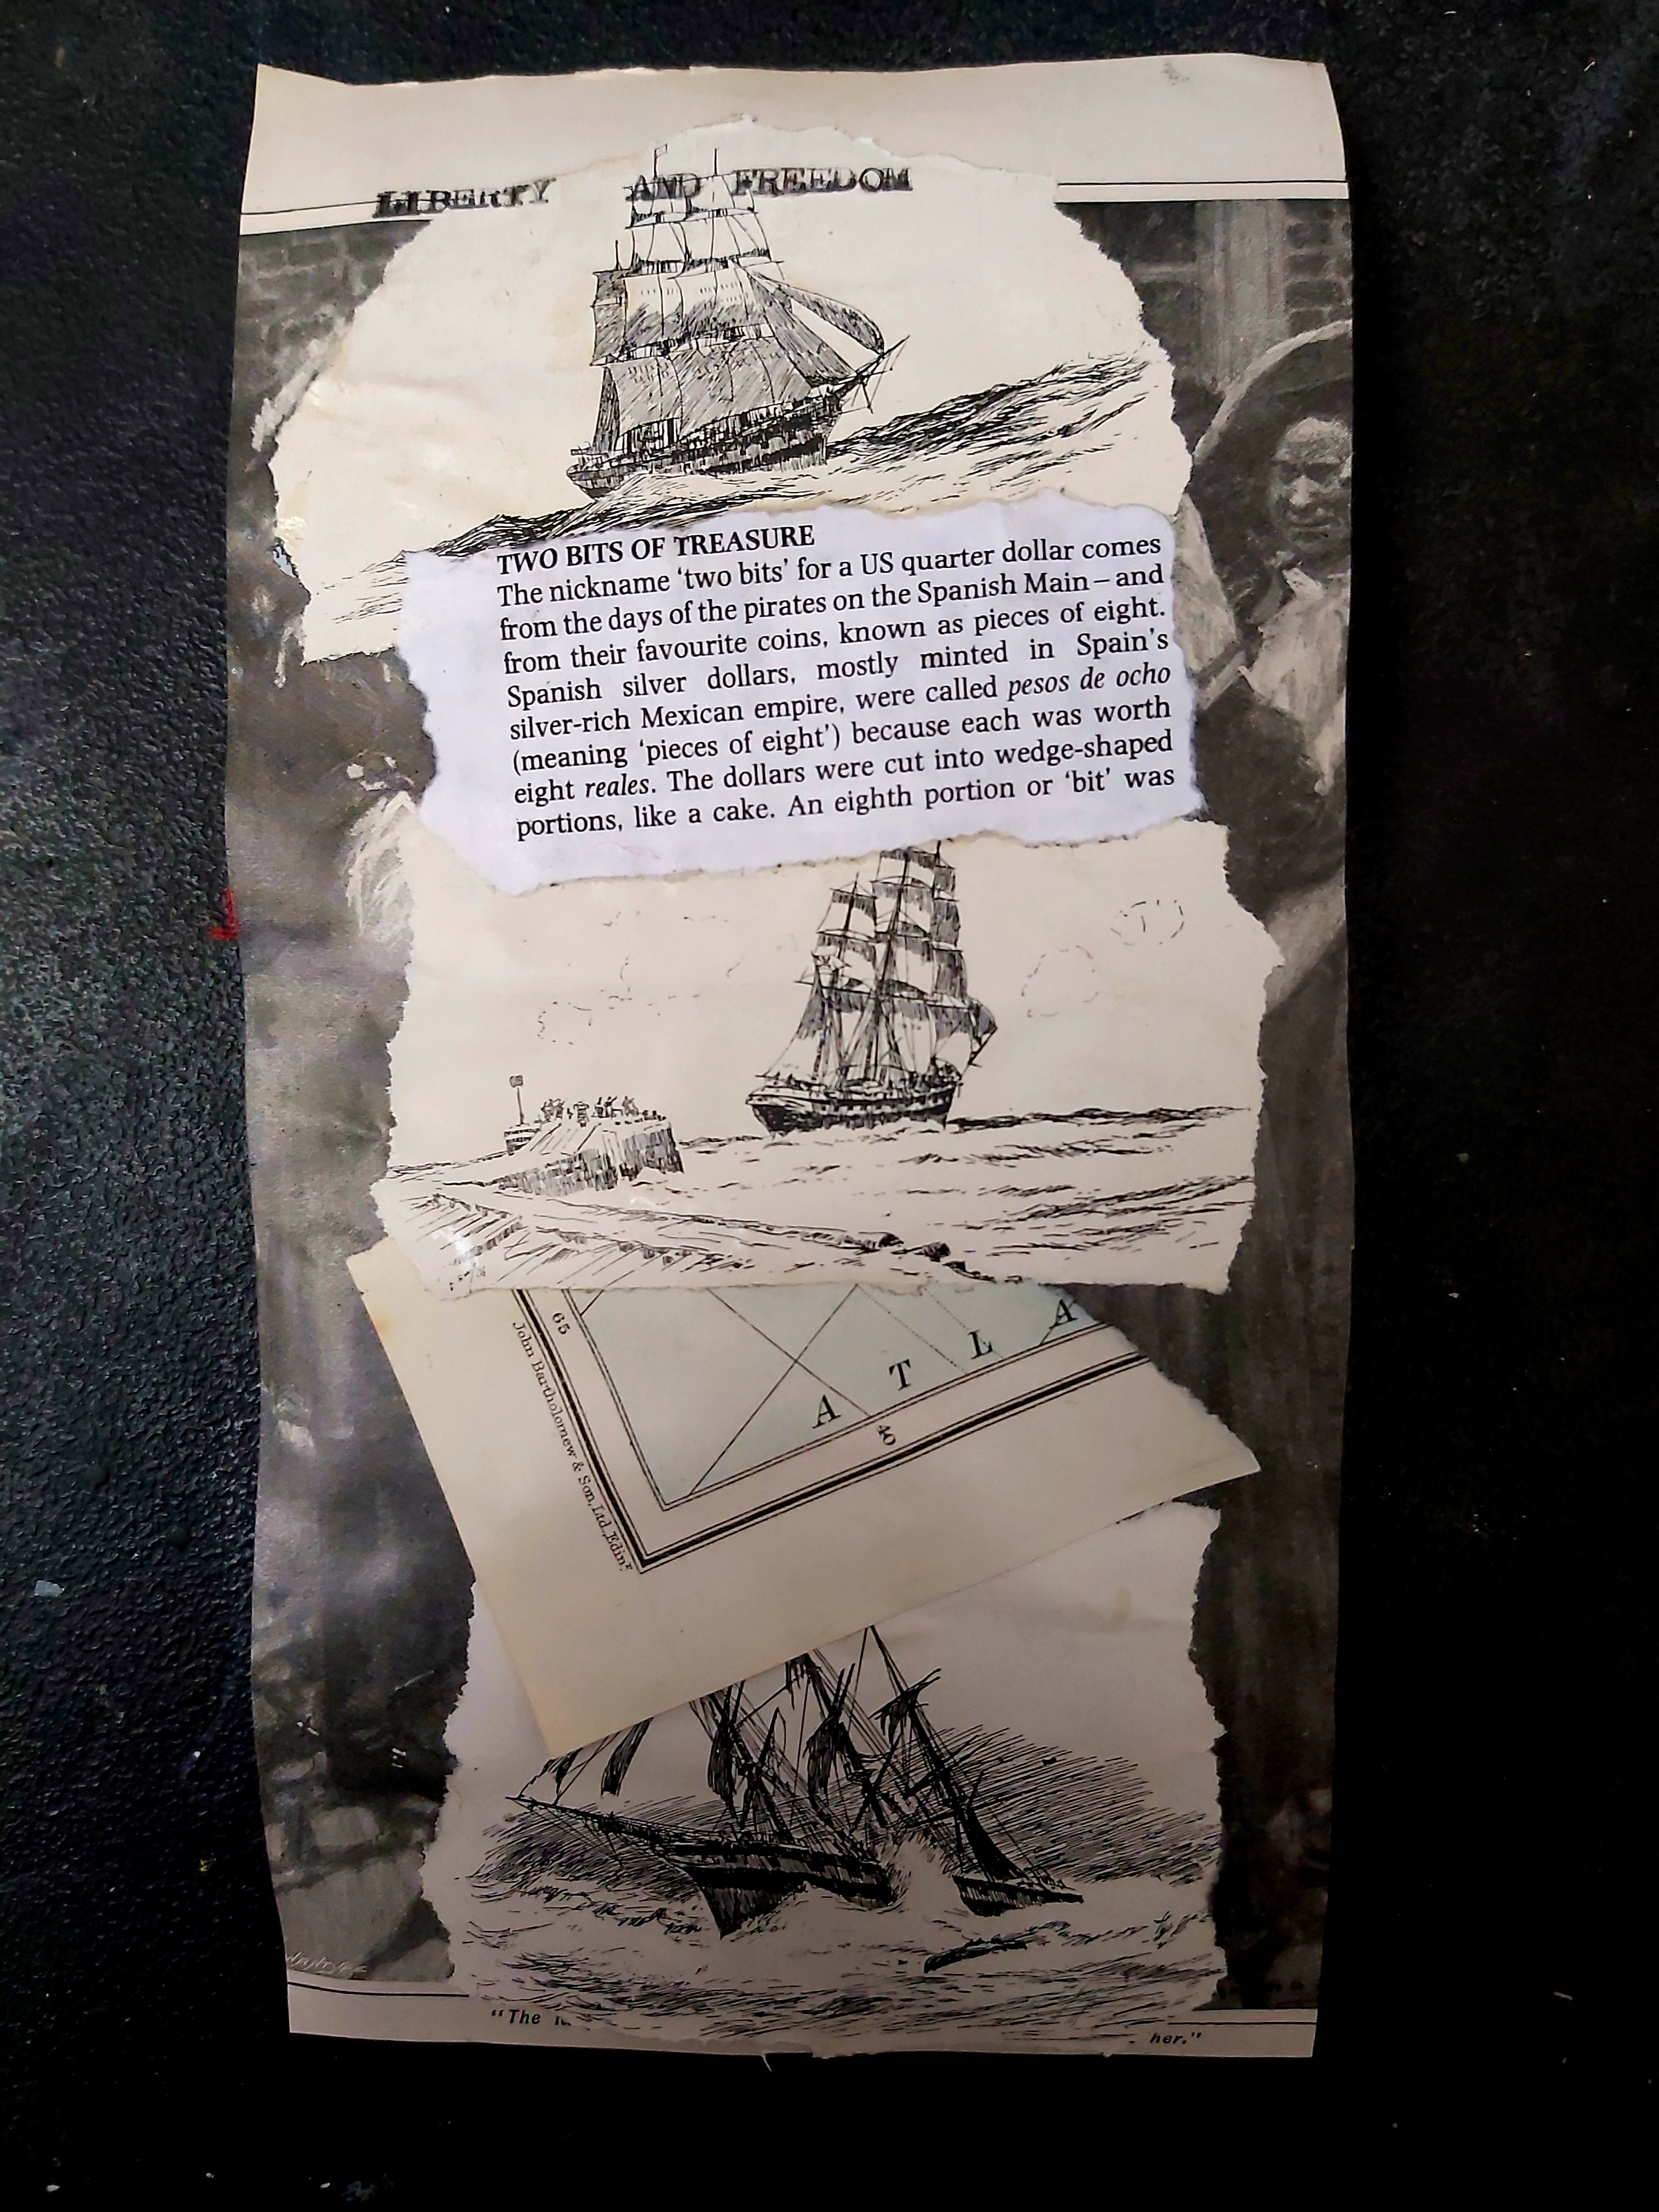 LIBERTY AND FREEDOM
TWO BITS OF TREASURE
The nickname ‘two bits’ for a US quarter dollar comes
from the days of the pirates on the Spanish Main – and
from their favourite coins, known as pieces of eight.
Spanish silver dollars, mostly minted in Spain’s
silver-rich Mexican empire, were called pesos de ocho
(meaning ‘pieces of eight’) because each was worth
eight reales. The dollars were cut into wedge-shaped
portions, like a cake. An eighth portion or ‘bit’ was
65
A T L A
40
John Bartholomew & Son, Ltd., Edinr.
“The
her.”